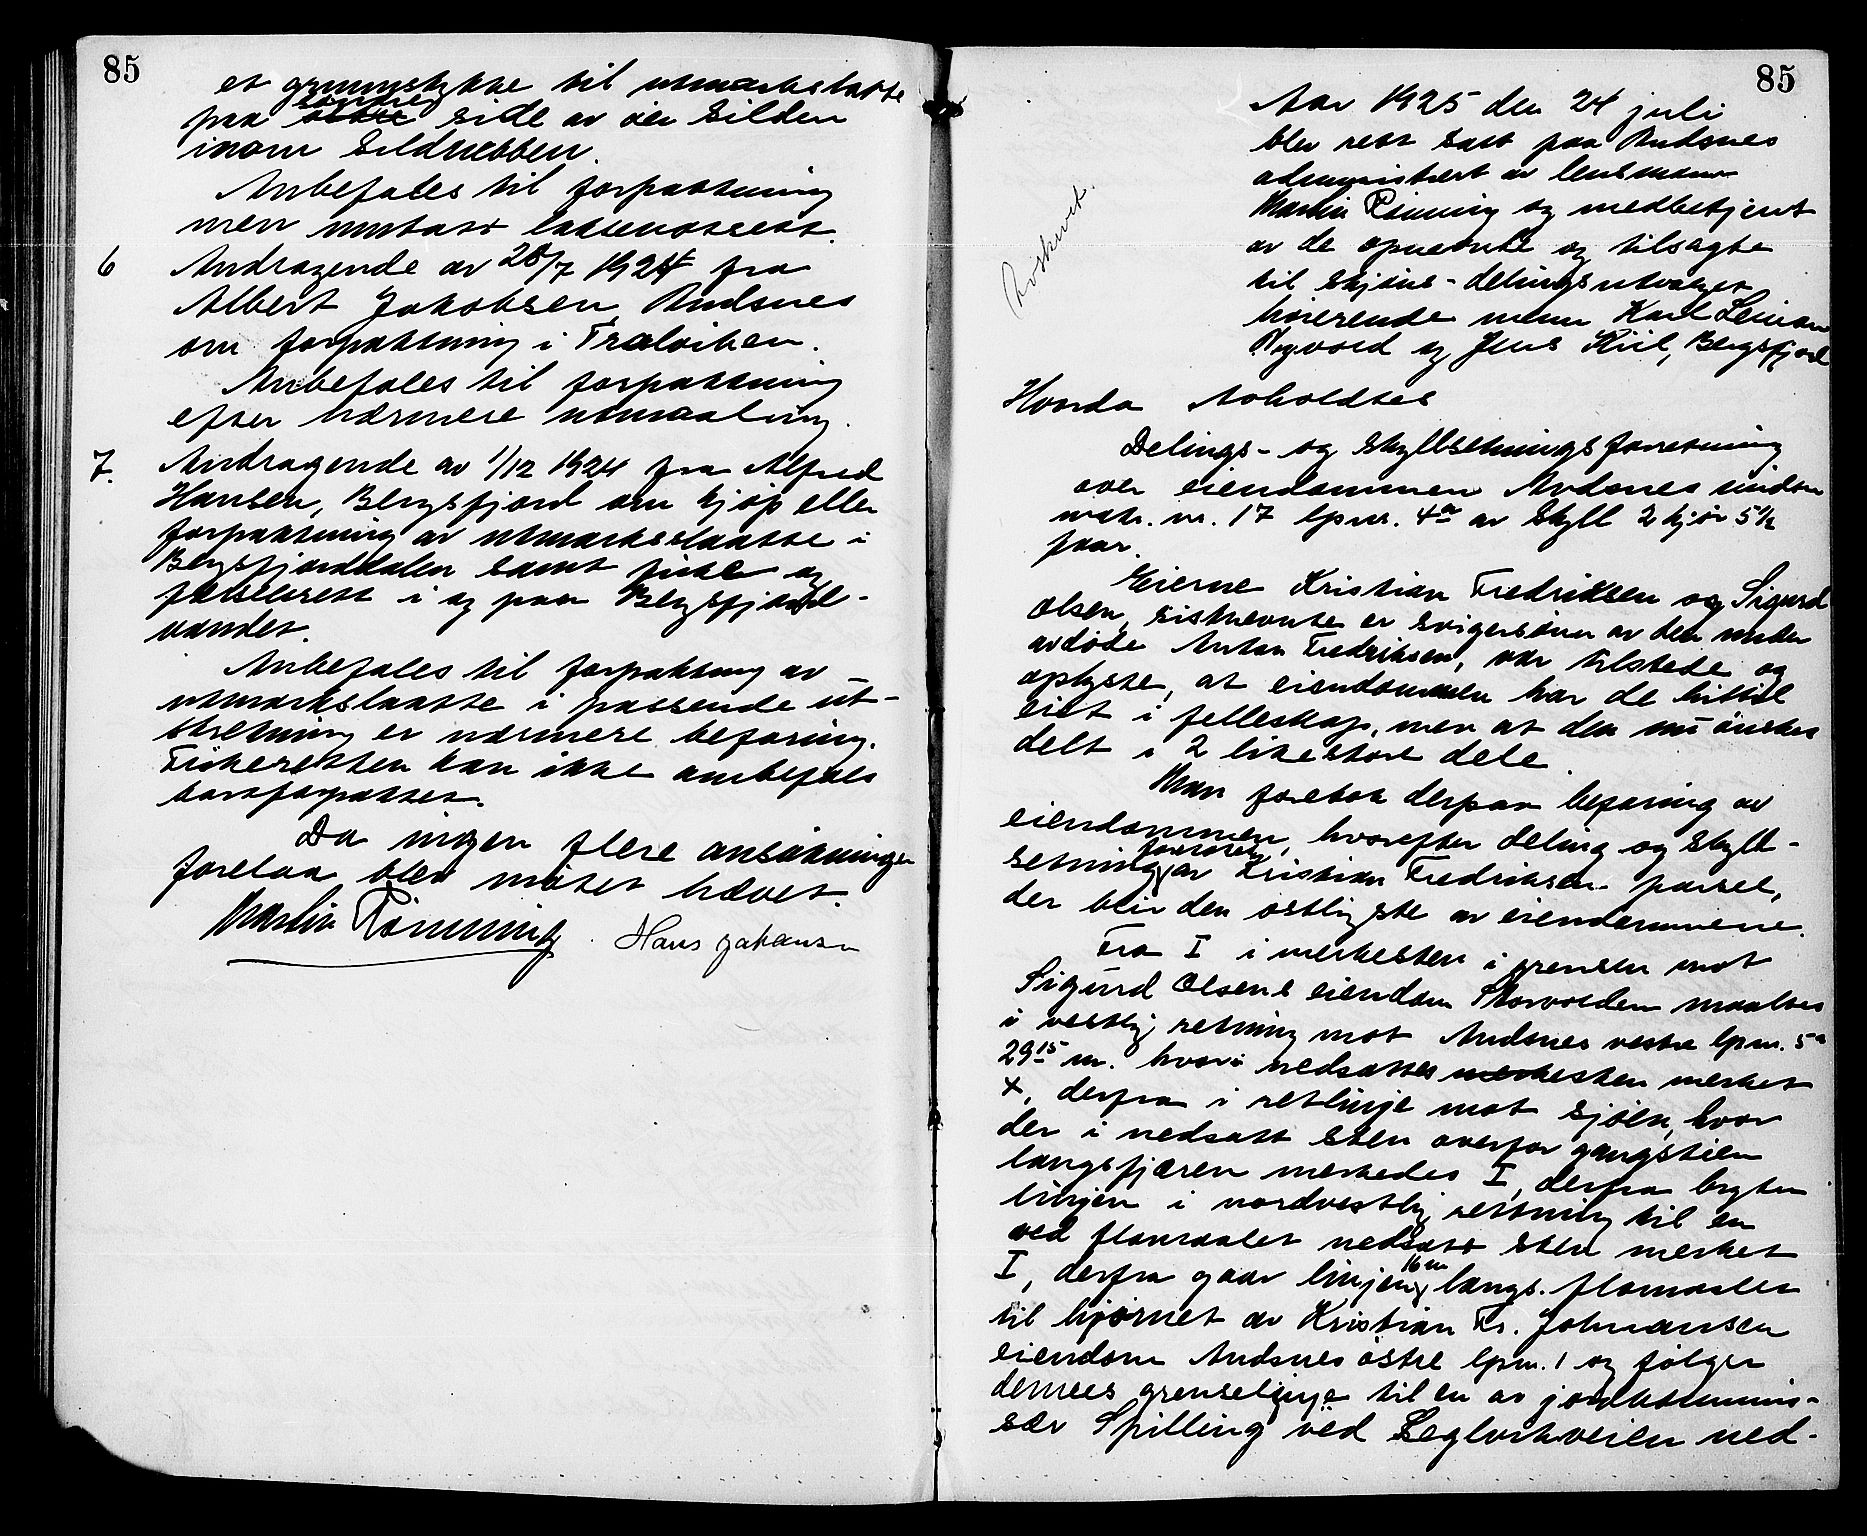 85
et grunnstykke til utmarkslaatte
paa søndre side av øen Silden
inom Sildnebben.
Anbefales til forpaktning
men undtatt laksenotrett.
6 Andragende av 28/7 1924 fra
Albert Jakobsen Andsnes
om forpaktning i Tralviken.
Anbefales til forpaktning
efter nærmere utmaaling.
7. Andragende av 1/12 1924 fra Alfred
Hansen, Bergsfjord om kjøp eller
forpaktning av utmarkslaatte i
Bergsfjorddalen samt fiske og
fiskerett i og paa Bergsfjord-
vandet.
Anbefales til forpaktning av
utmarkslaatte i passende ut-
strekning er nærmere befaring.
Fiskeretten kan ikke anbefales
bortforpaktet.
Da ingen flere ansøkninger
forelaa blev møtet hævet.
Martin Rønning Hans Johansen
85
Aar 1925 den 24 juli
blev rett satt paa Andsnes
administrert av lensmann
Martin Rønning og medbetjent
av de opnævnte og tilsagte
til skjøns-delingsutvalget
hørerende menn Karl Simon
Øyvold og Jens Kiil, Bergsfjord
Avskrevet.
Hvorda Avholdtes
Delings- og skyllsetningsforretning
over eiendommen Andsnes inder
matr. nr. 17 lpnr. 4a av skyll 2 kjør 5 1/2
faar.
Eierne Kristian Fredriksen og Sigurd
Olsen, sistnevnte er svigersønn av den nu
avdøde Anton Fredriksen, var tilstede og
oplyste, at eiendommen har de hittil
eiet i felleskap, men at den nu ønskes
delt i 2 likestore dele.
Man foretok derpaa befaring av
eiendommen, hvorefter deling og skyll-
setning foretoges av Kristian Fredriksen parsel,
der blir den østligste av eiendommene.
Fra I i merkesten i grensen mot
Sigurd Olsens eiendom Storvolden maaltes
i vestlig retning mot Andsnes vestre lpnr. 5a
29 15 m. hvor i nedsattes merkesten merket
+, derfra i rettlinje mot sjøen, hvor
der i nedsatt sten overfor gangstien
langsfjæren merkedes I, derfra bryter
linjen i nordvestlig rettning til en
ved flomaalet nedsatt sten merket
I, derfra gaar linjen 16 m langs flomaalet
til hjørnet av Kristian Fr. Johansen
eiendom Andsnes østre lpnr. 1 og følger
dennes grenselinje til en av jordkommis-
sær Spilling ved Seglvikveien ned-